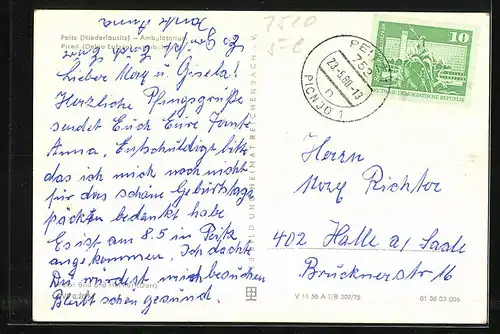 Tante Anna
Peitz (Niederlausitz) – Ambulatorium
Picnjo (Dolna Łužyca)
Lieber Marx u. Gisela!
Herzliche Pfingsgrüße
sendet Euch Eure Tante
Anna. Entschuldigt bitte
das ich mich noch nicht
für das schöne Geburtstags
päckchen bedankt habe
Es ist am 8.5 in Peitz
angekommen. Ich dachte
Du würdest mich besuchen
Bleibt schön gesund.
BILD UND HEIMAT REICHENBACH I. V.
7510
5-E
PEITZ
7522
23-5.80-13
n
PICNJO 1
10
DEUTSCHE DEMOKRATISCHE REPUBLIK
Herrn
Marx Richter
402 Halle a/ Saale
Brucknerstr 16
V 11 50 A 1/B 302/75
01 06 03 006